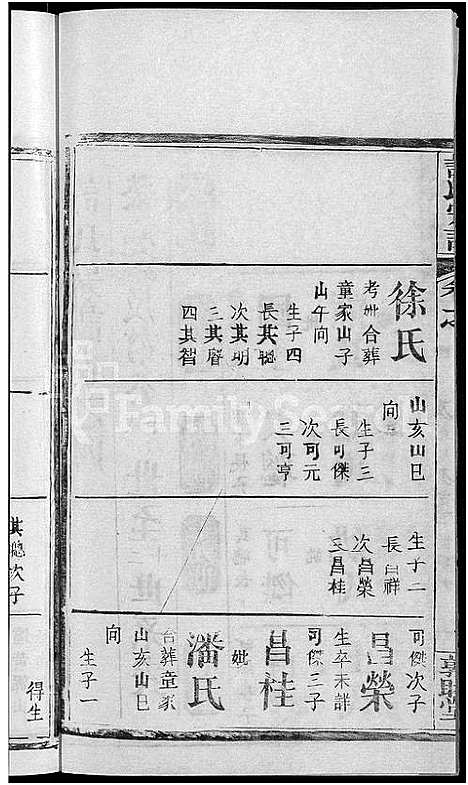 徐氏
考妣合葬
童家山子
山午向
生子四
長其聰
次其明
三其睿
四其智
山亥山巳
向
生子三
長可傑
次可元
三可亨
生子二
長昌祥
次昌榮
三昌桂
可傑次子
昌榮
生卒未詳
可傑三子
昌桂
妣
潘氏
合葬童家
山亥山巳
向
生子一
其聰次子
得生
FamilySearch